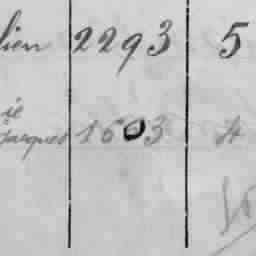 lien 2293 5
ie
Jacques 1503 4